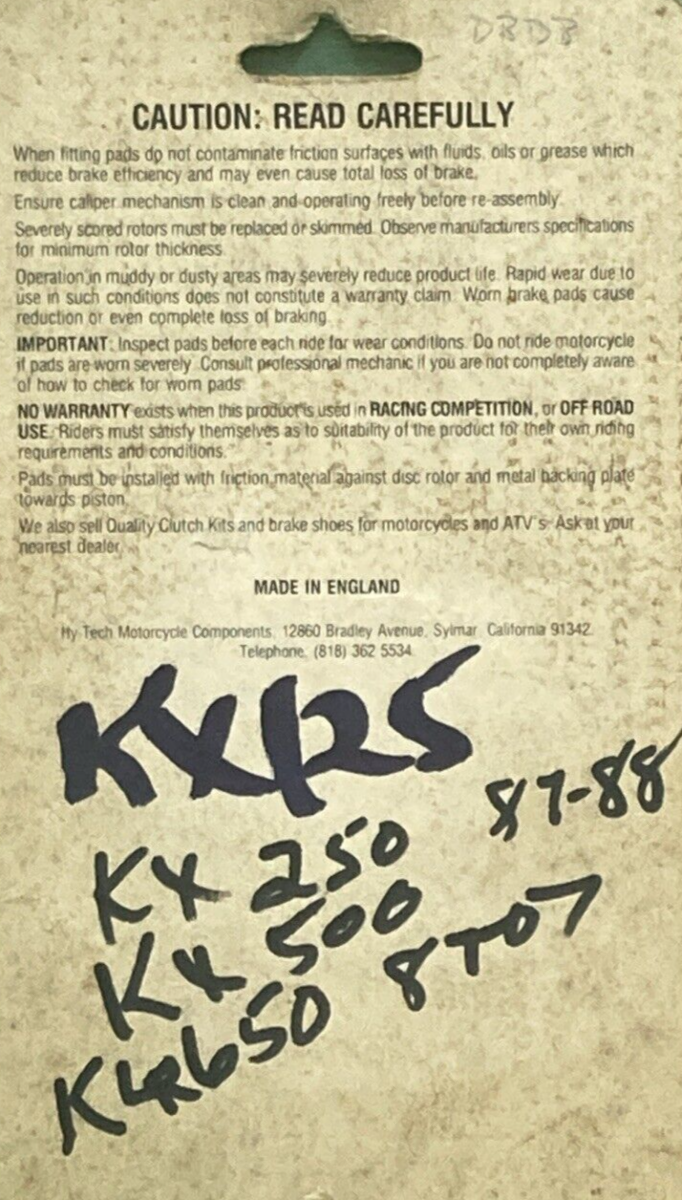 DBDB
CAUTION: READ CAREFULLY
When fitting pads do not contaminate friction surfaces with fluids, oils or grease which
reduce brake efficiency and may even cause total loss of brake.
Ensure caliper mechanism is clean and operating freely before re-assembly.
Severely scored rotors must be replaced or skimmed. Observe manufacturers specifications
for minimum rotor thickness.
Operation in muddy or dusty areas may severely reduce product life. Rapid wear due to
use in such conditions does not constitute a warranty claim. Worn brake pads cause
reduction or even complete loss of braking.
IMPORTANT: Inspect pads before each ride for wear conditions. Do not ride motorcycle
if pads are worn severely. Consult professional mechanic if you are not completely aware
of how to check for worn pads.
NO WARRANTY exists when this product is used in RACING COMPETITION, or OFF ROAD
USE. Riders must satisfy themselves as to suitability of the product for their own riding
requirements and conditions.
Pads must be installed with friction material against disc rotor and metal backing plate
towards piston.
We also sell Quality Clutch Kits and brake shoes for motorcycles and ATV's. Ask at your
nearest dealer.
MADE IN ENGLAND
Hy Tech Motorcycle Components, 12860 Bradley Avenue, Sylmar, California 91342.
Telephone: (818) 362 5534.
KX125
KX 250 87-88
KX 500
KLR650 8TO7